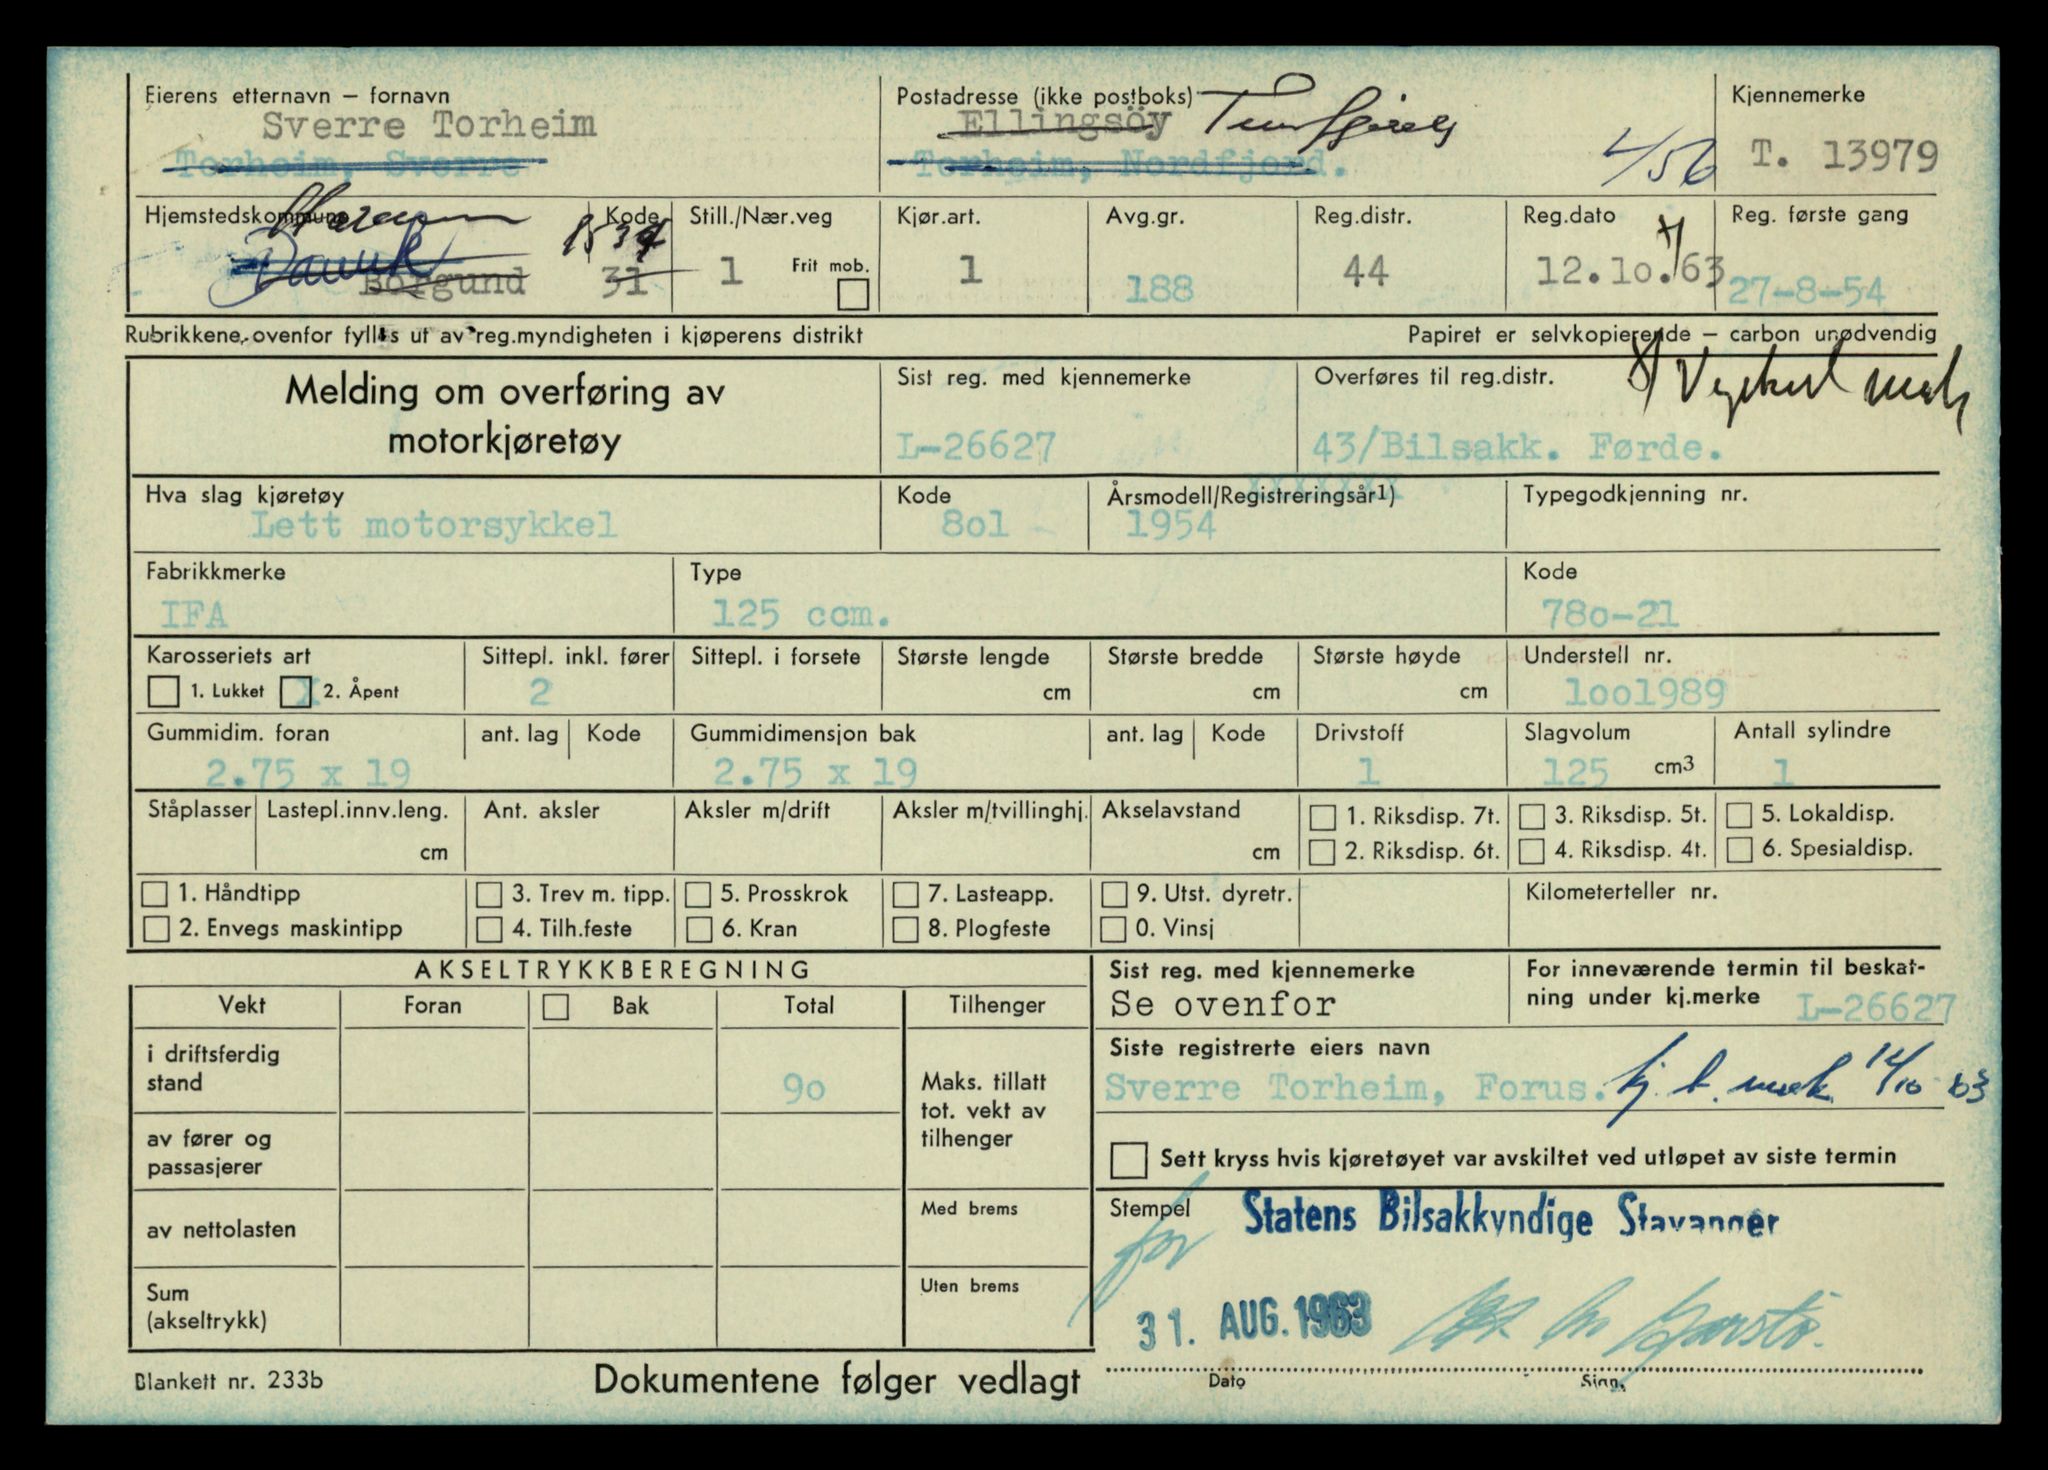 Eierens etternavn – fornavn
Sverre Torheim
Torheim, Sverre
Postadresse (ikke postboks)
Ellingsöy
Torheim, Nordfjord.
4/56
Kjennemerke
T. 13979
Hjemstedskommune
Borgund
Kode
1534
31
Still./Nær.veg
1
Frit mob.
Kjør.art.
1
Avg.gr.
188
Reg.distr.
44
Reg.dato
12.10.63
Reg. første gang
27-8-54
Rubrikkene ovenfor fylles ut av reg.myndigheten i kjøperens distrikt
Papiret er selvkopierende – carbon unødvendig
Melding om overføring av
motorkjøretøy
Sist reg. med kjennemerke
L-26627
Overføres til reg.distr.
43/Bilsakk. Førde.
Hva slag kjøretøy
Lett motorsykkel
Kode
8o1
Årsmodell/Registreringsår1)
xxxxxxx
1954
Typegodkjenning nr.
Fabrikkmerke
IFA
Type
125 ccm.
Kode
78o-21
Karosseriets art
1. Lukket
X 2. Åpent
Sittepl. inkl. fører
2
Sittepl. i forsete
Største lengde
cm
Største bredde
cm
Største høyde
cm
Understell nr.
1oo1989
Gummidim. foran
2.75 x 19
ant. lag
Kode
Gummidimensjon bak
2.75 x 19
ant. lag
Kode
Drivstoff
1
Slagvolum
125 cm3
Antall sylindre
1
Ståplasser
Lastepl.innv.leng.
cm
Ant. aksler
Aksler m/drift
Aksler m/tvillinghj.
Akselavstand
cm
1. Riksdisp. 7t.
2. Riksdisp. 6t.
3. Riksdisp. 5t.
4. Riksdisp. 4t.
5. Lokaldisp.
6. Spesialdisp.
1. Håndtipp
2. Envegs maskintipp
3. Trev m. tipp.
4. Tilh.feste
5. Prosskrok
6. Kran
7. Lasteapp.
8. Plogfeste
9. Utst. dyretr.
0. Vinsj
Kilometerteller nr.
AKSELTRYKKBEREGNING
Vekt
Foran
Bak
Total
Tilhenger
i driftsferdig
stand
9o
Maks. tillatt
tot. vekt av
tilhenger
av fører og
passasjerer
av nettolasten
Med brems
Sum
(akseltrykk)
Uten brems
Sist reg. med kjennemerke
Se ovenfor
For inneværende termin til beskat-
ning under kj.merke L-26627
Siste registrerte eiers navn
Sverre Torheim, Forus.
kj. t. merk
Sett kryss hvis kjøretøyet var avskiltet ved utløpet av siste termin
Stempel
for
Statens Bilsakkyndige Stavanger
31. AUG. 1963
Dato
Sign.
Blankett nr. 233b
Dokumentene følger vedlagt